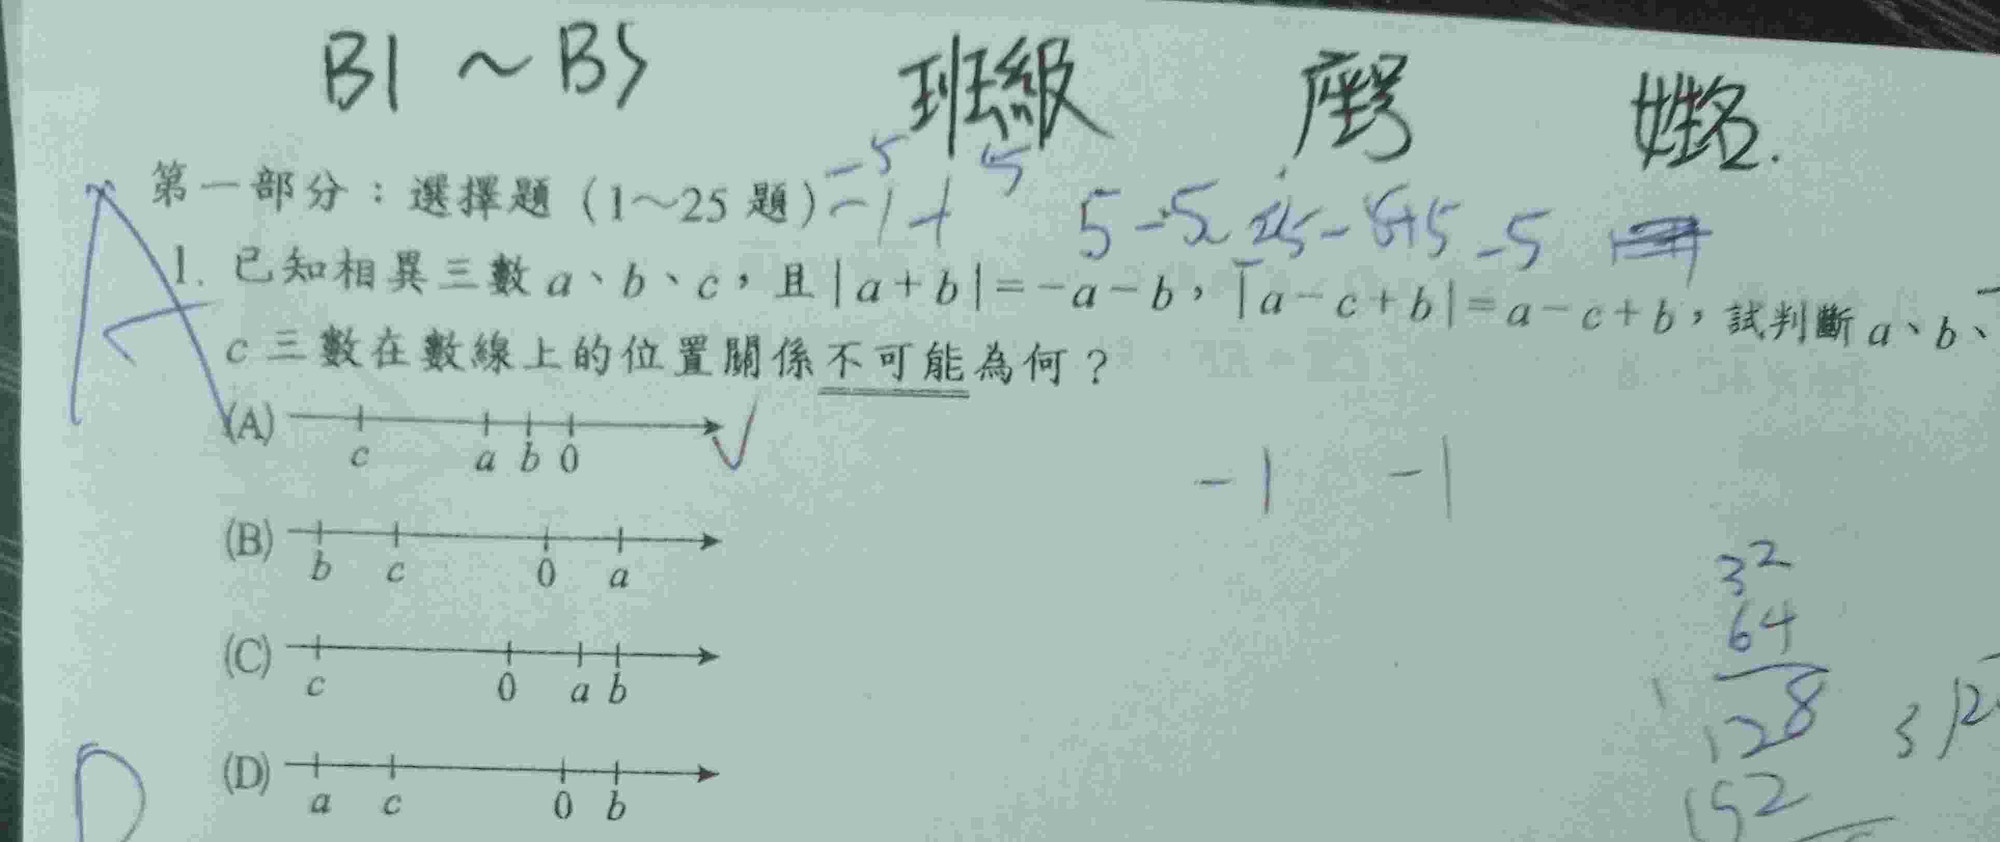 B1 ~ B5 班級 座号 姓名.
-5 5
第一部分：選擇題（1～25 題）
-1+ 5-5 -5
1. 已知相異三數 a、b、c，且 |a+b|=-a-b，|a-c+b|=a-c+b，試判斷 a、b、
c 三數在數線上的位置關係不可能為何？
A
(A) c a b 0 ✓
-1 -1
(B) b c 0 a
32
64
128
(C) c 0 a b
3)12
152
(D) a c 0 b